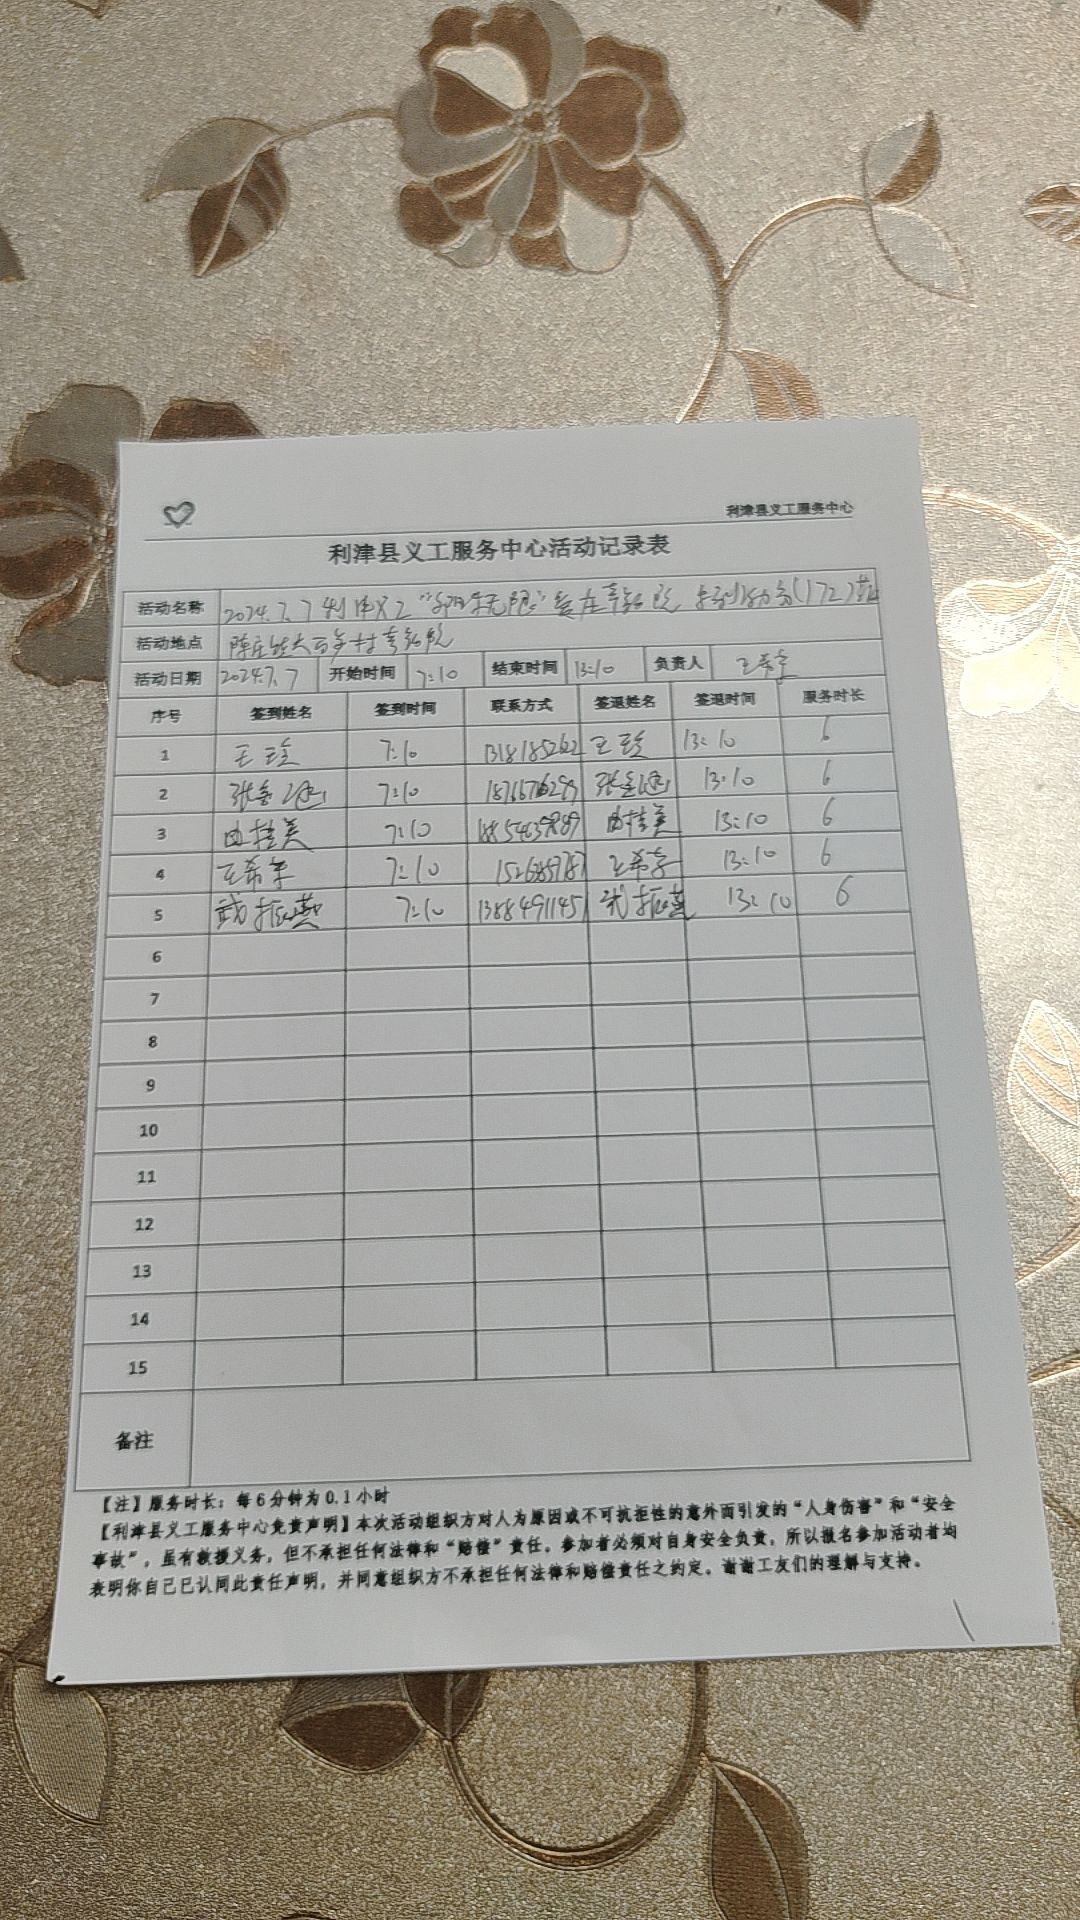 利津县义工服务中心
利津县义工服务中心活动记录表
活动名称 2024.7.7利津义工 陈庄 (172)
活动地点 陈庄 村
活动日期 2024.7.7 开始时间 7:10 结束时间 13:10 负责人 王希
序号 签到姓名 签到时间 联系方式 签退姓名 签退时间 服务时长
1 王 7:10 王 13:10 6
2 张 7:10 张 13:10 6
3 由桂美 7:10 由桂美 13:10 6
4 王希 7:10 王希 13:10 6
5 振燕 7:10 13884911451 振燕 13:10 6
6
7
8
9
10
11
12
13
14
15
备注
【注】服务时长：每6分钟为0.1小时
【利津县义工服务中心免责声明】本次活动组织方对人为原因或不可抗拒性的意外而引发的“人身伤害”和“安全
事故”，虽有救援义务，但不承担任何法律和“赔偿”责任。参加者必须对自身安全负责，所以报名参加活动者均
表明你自己已认同此责任声明，并同意组织方不承担任何法律和赔偿责任之约定。谢谢工友们的理解与支持。